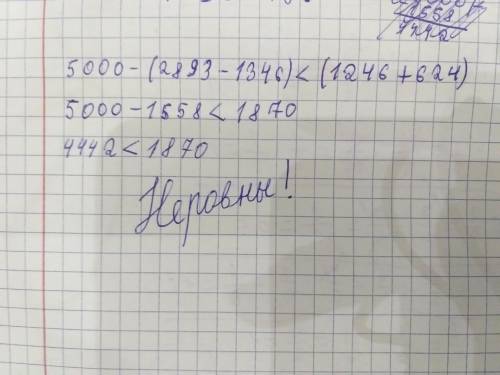 1558
4442
5000-(2893-1346)<(1246+624)
5000-1558<1870
4442<1870
Неровны!